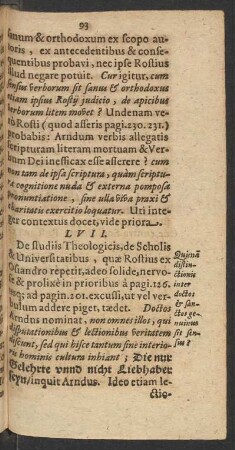 93
sanum & orthodoxum ex scopo au-
toris, ex antecedentibus & conse-
quentibus probavi, nec ipse Rostius
illud negare potuit. Cur igitur, cum
sensus verborum sit sanus & orthodoxus
etiam ipsius Rostij judicio, de apicibus
verborum litem movet? Undenam ve-
rò Rosti (quod asseris pagi. 230. 231.)
probabis: Arndum verbis allegatis
scripturam literam mortuam & Ver-
bum Dei inefficax esse asserere? cum
non tam de ipsa scriptura, quàm scriptu-
ræ cognitione nuda & externa pomposa
pronuntiatione, sine ulla viva praxi &
charitatis exercitio loquatur. Uti inte-
ger contextus docet, vide priora.
LVII.
De studiis Theologicis, de Scholis
& Universitatibus, quæ Rostius ex
Osiandro repetit, adeo solidè, nervo-
sè & prolixè in prioribus à pagi. 126.
usq; ad pagin. 201. excussi, ut vel ver-
bulum addere piget, tædet. Doctos
Arndus nominat, non omnes illos, qui
disputationibus & lectionibus veritatem
discunt, sed qui hisce tantum sine interio-
ris hominis cultura inhiant; Die nur
Gelehrte unnd nicht Liebhaber
seyn/ inquit Arndus. Ideo etiam le-
ctio-
Quænã
distin-
ctionis
inter
doctos
& san-
ctos ge-
nuinus
sit sen-
sus?